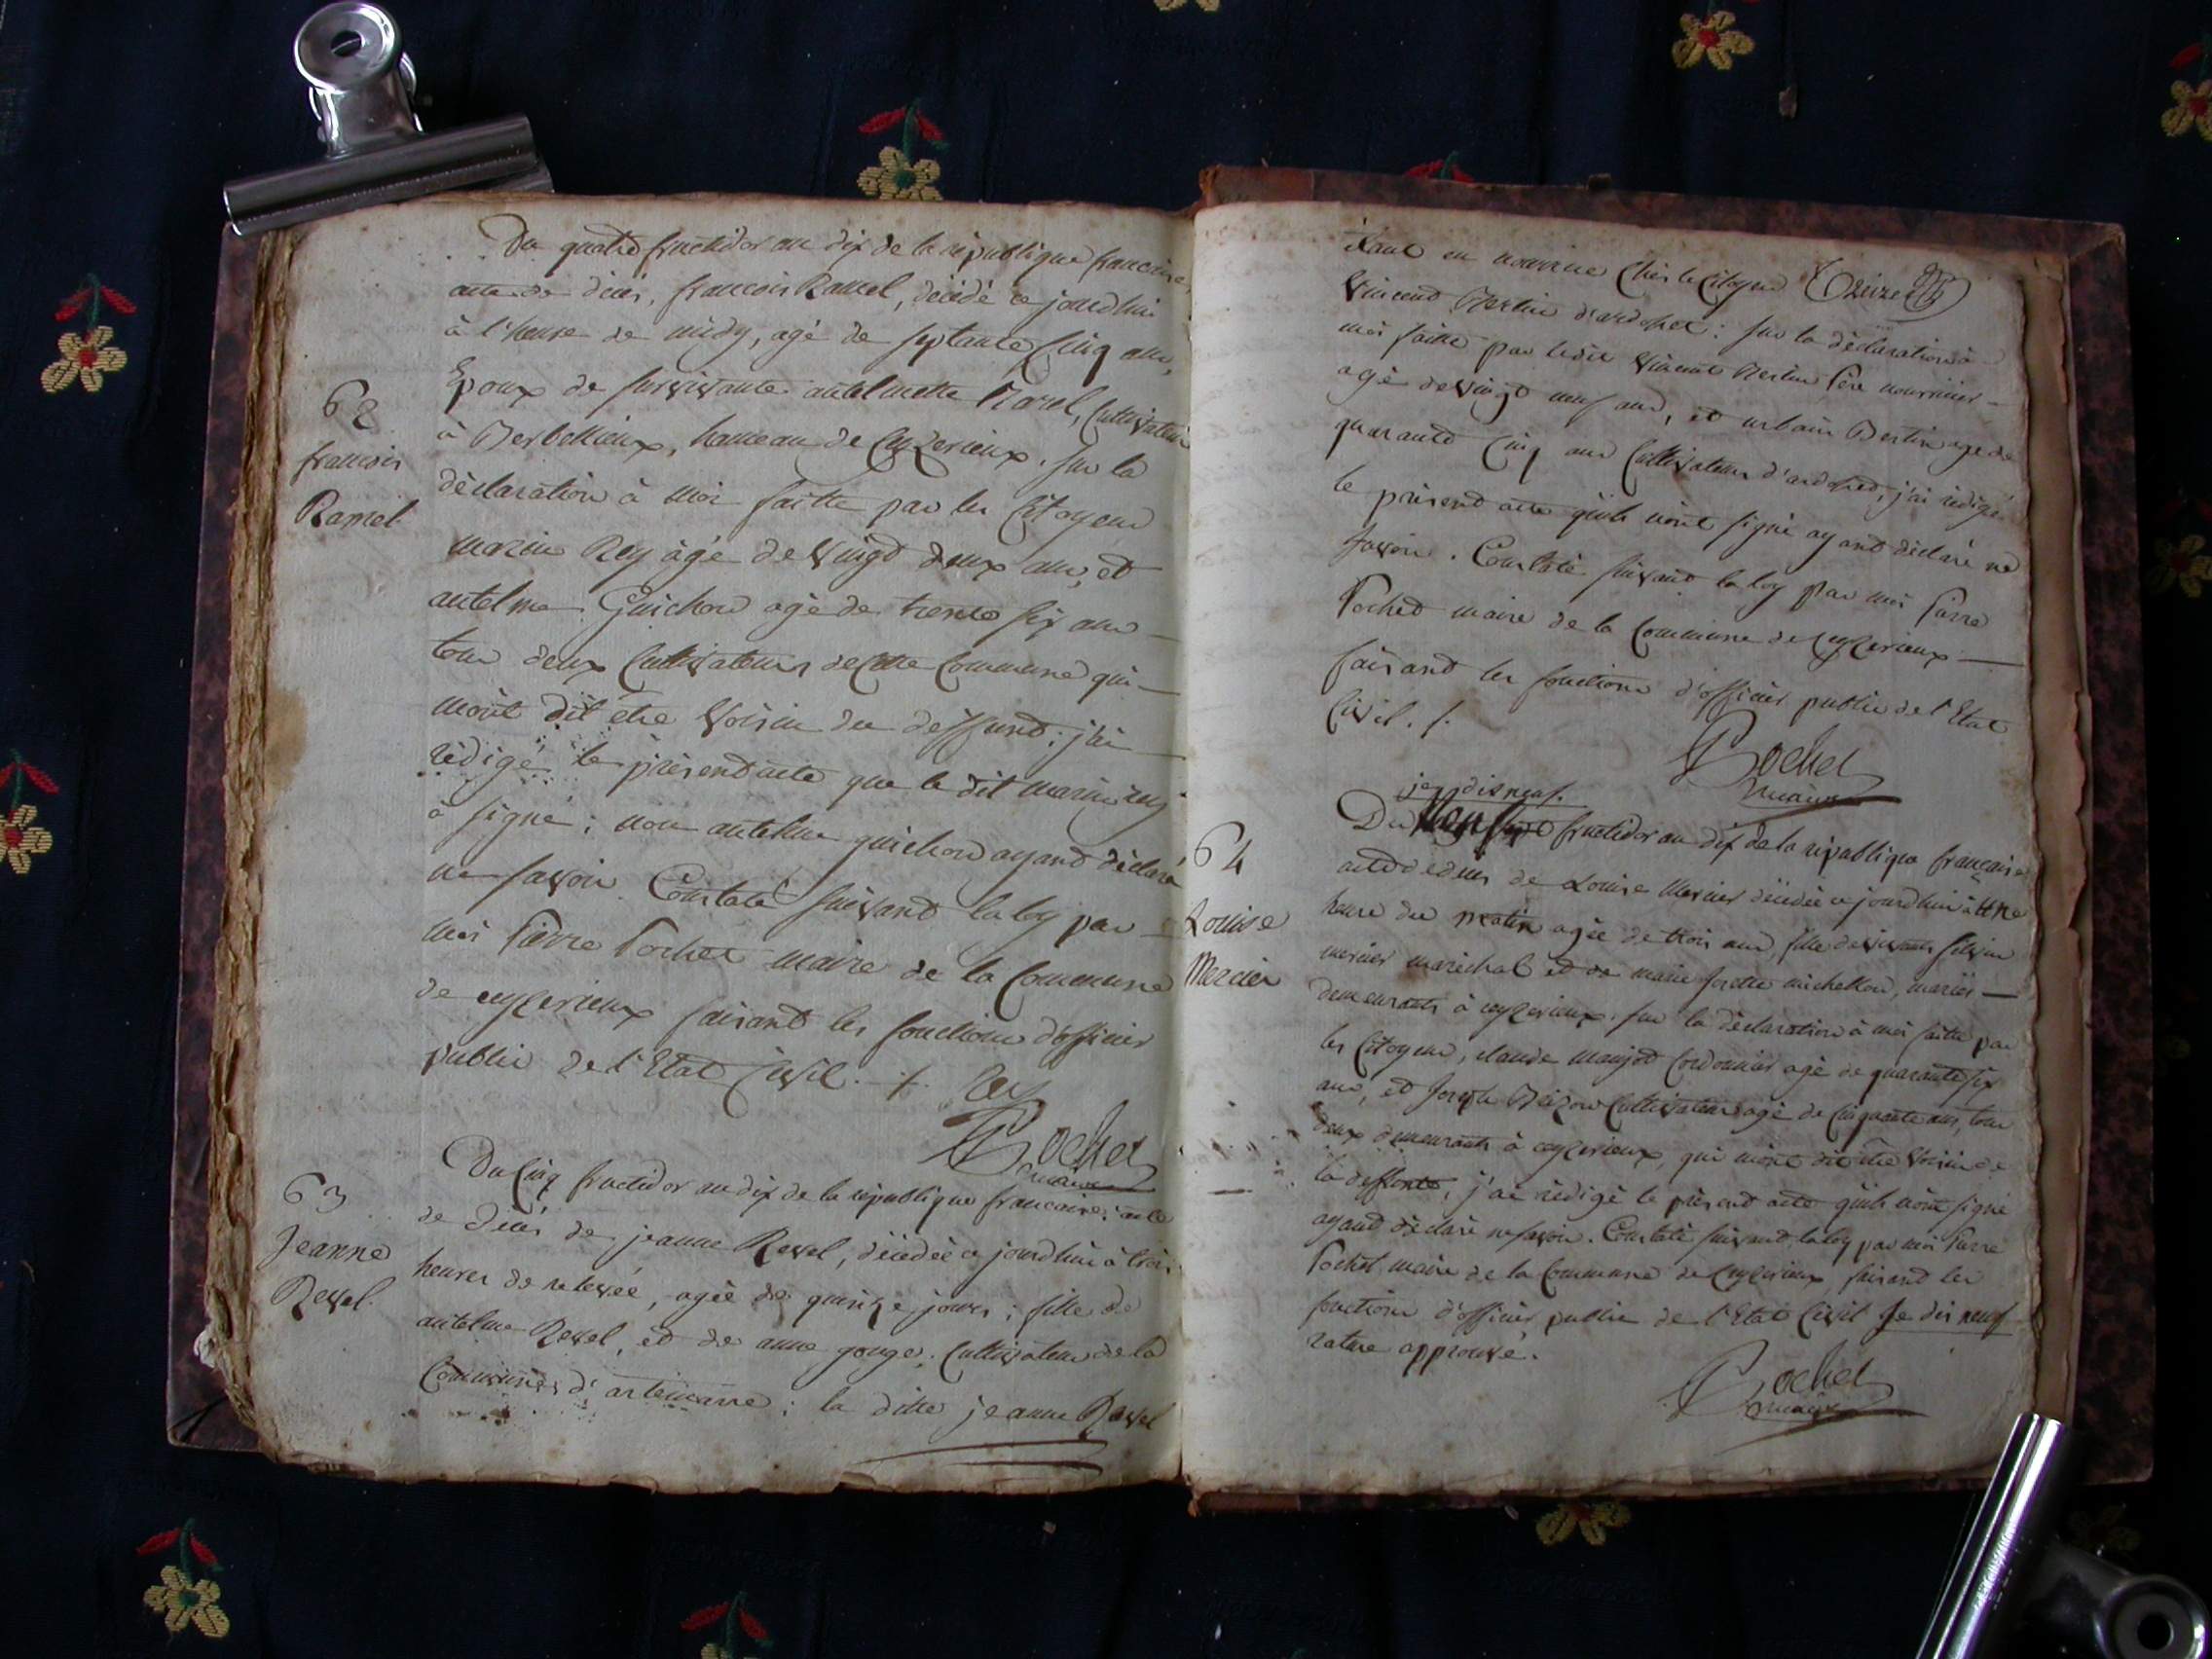 Du quatre fructidor an dix de la republique francaise,
acte de décés, francois Ramel, décédé ce jourdhui
à l'heure de midy, agé de septante cinq ans,
Epoux de survivante antelmette Marel, Cultivateur
62
à Berbellieux, hameau de Ceyzerieux. sur la
francois
déclaration à moi faitte par les Citoyens
Ramel
marin Rey àgé de vingt deux ans, et
antelme Guichon agé de trente six ans
tous deux Cultivateurs de Cette Commune qui
m'ont dit étre Voisin du deffunt; j'ai
rédigé le présent acte que le dit marin rey
à signé; non antelme guichon ayant déclaré
ne savoir. Constaté suivant la loy par
moi Pierre Pochet maire de la Commune
de ceyzerieux faisant les fonctions d'officier
public de l'Etat Civil. Rey
Pochet
maire
63
Jeanne
Revel.
Du Cinq fructidor an dix de la republique francaise; acte
de décés de jeanne Revel, décédée ce jourdhui à trois
heures de relevée, agée de quinze jours; fille de
antelme Revel, et de anne gouge, Cultivateurs de la
Commune d'artemarre; la ditte jeanne Revel
étant en nourrice Chés le Citoyen Treize
Vincent Bertin d'ardosset: sur la déclaration à
moi faitte par ledit Vincent Bertin Père nourricier
agé de vingt neuf ans, et urbain Bertin agé de
quarante Cinq ans Cultivateurs d'ardosset, j'ai rédigé
le présent acte qu'ils n'ont signé ayant déclaré ne
savoir. Constaté suivant la loy par moi Pierre
Pochet maire de la Commune de Ceyzerieux
faisant les fonctions d'officier public de l'Etat
Civil.
Pochet
maire
je dis neuf.
64
Louise
Mercier
Du fructidor an dix de la republique française
acte de décés de Louise Mercier décédée ce jourdhui à une
heure du matin agée de trois ans, fille de vivants silvin
mercier maréchal et de marie josette michellon, mariés
demeurants à ceyzerieux. sur la déclaration à moi faitte par
les Citoyens, claude maujot Cordonnier agé de quarante six
ans, et Joseph Cultivateur agé de Cinquante ans, tous
deux demeurants à ceyzerieux, qui m'ont dit étre Voisin de
la deffunte, j'ai rédigé le présent acte qu'ils n'ont signé
ayant déclaré ne savoir. Constaté suivant la loy par moi Pierre
Pochet maire de la Commune de Ceyzerieux faisant les
fonctions d'officier public de l'Etat Civil Je dis neuf
rature approuvé.
Pochet
maire